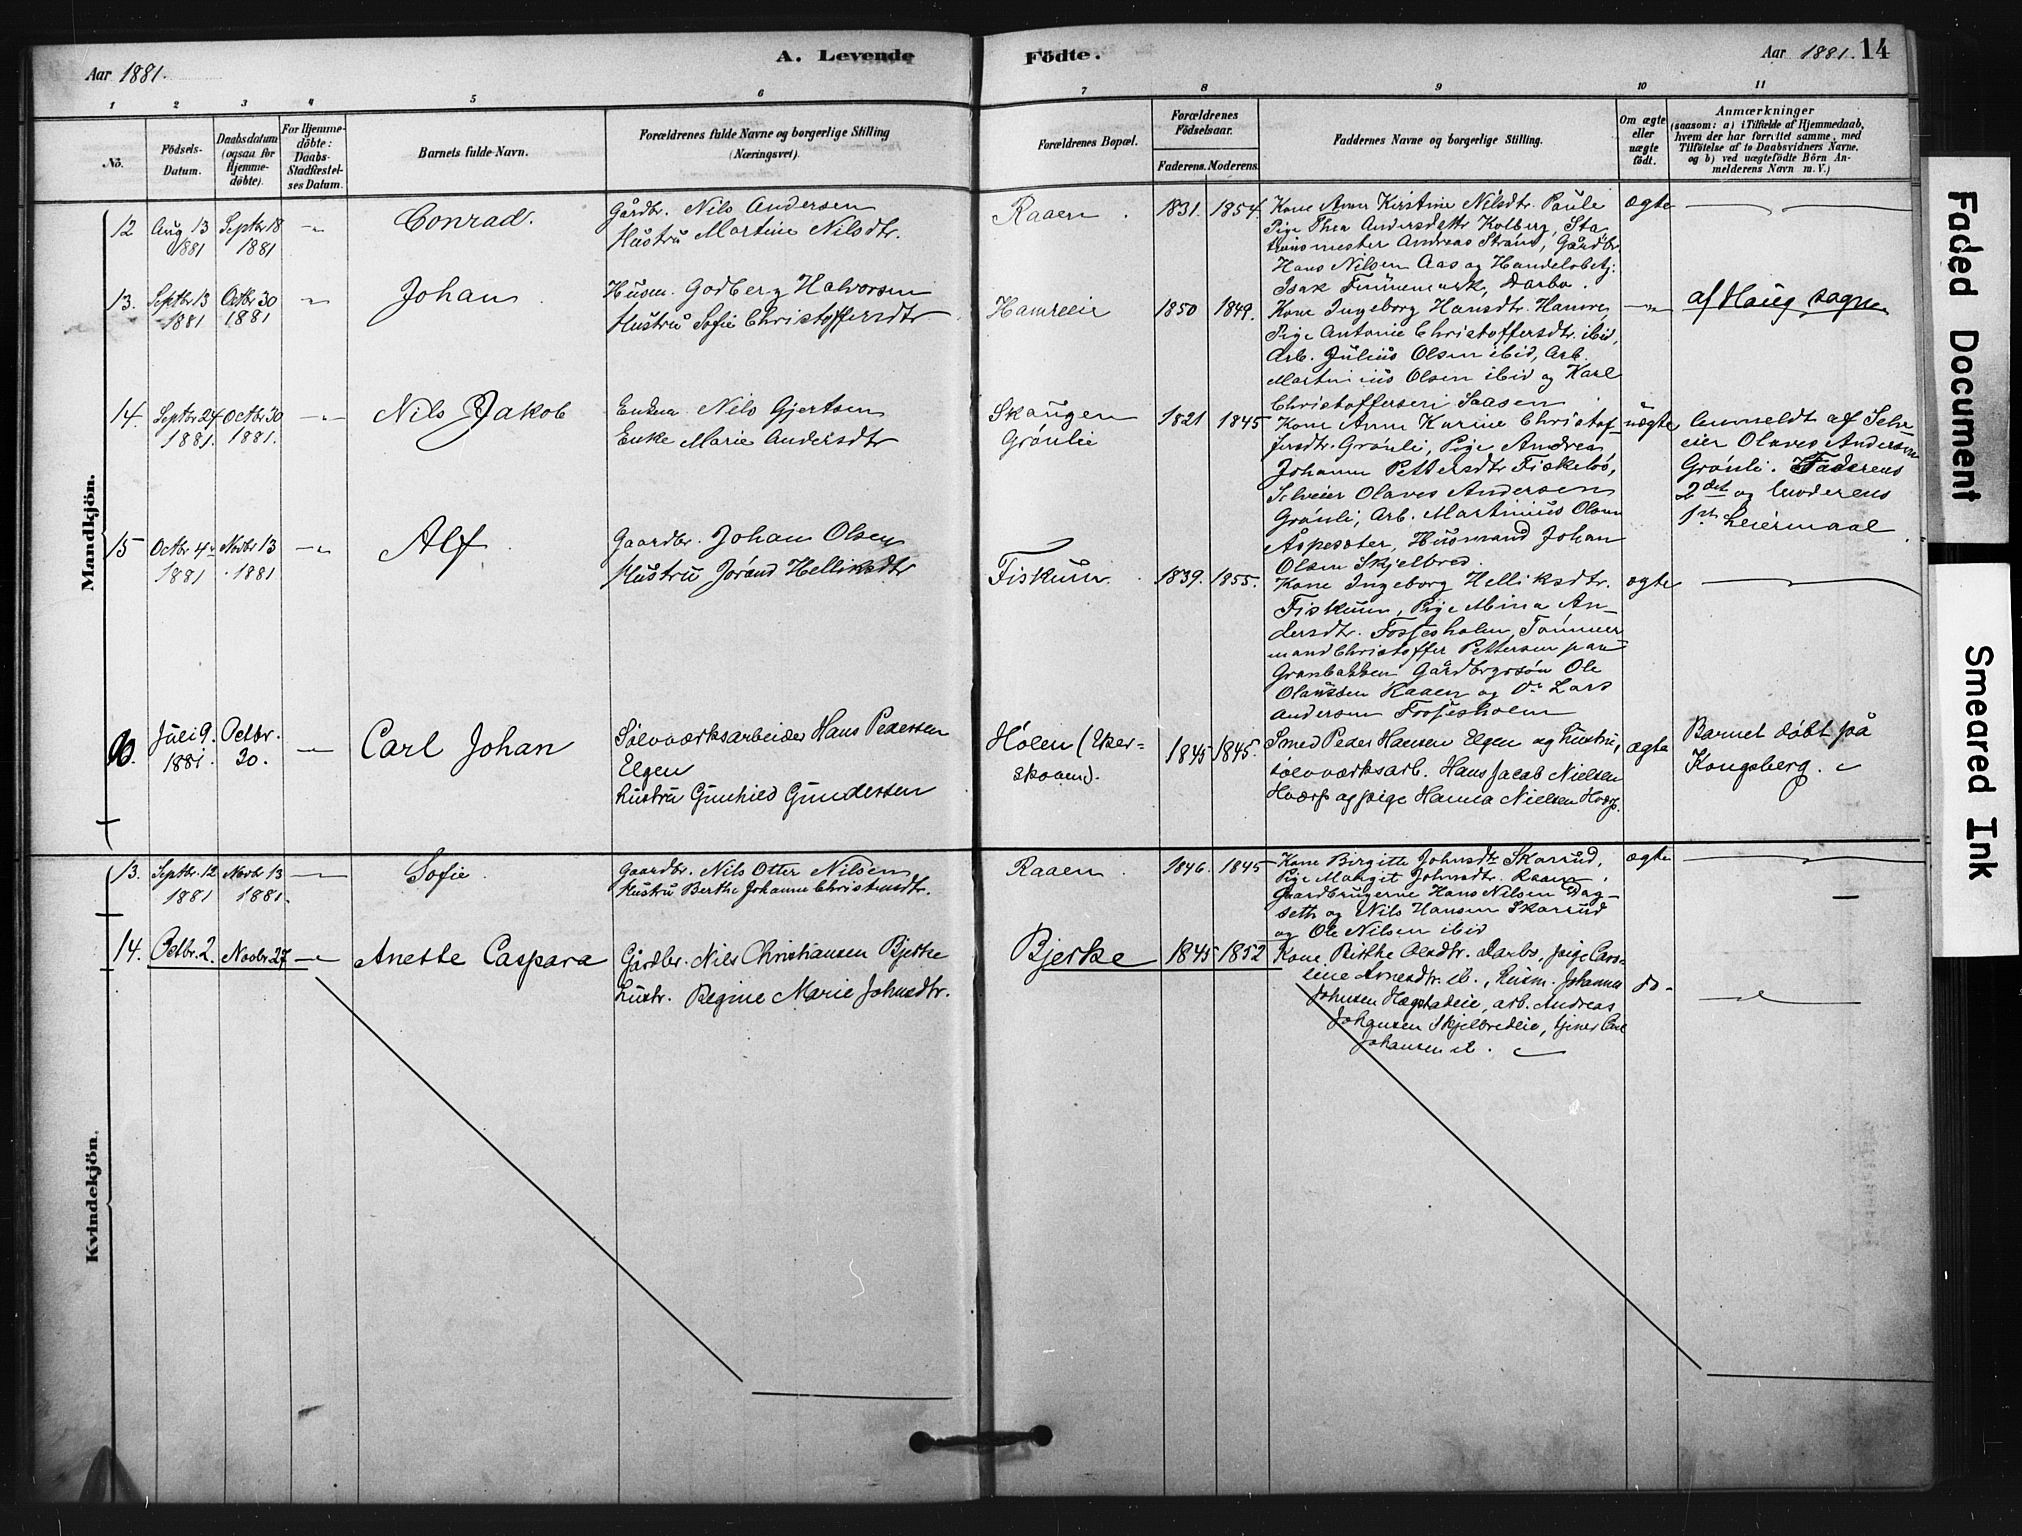 Aar 1881.
A. Levende
Födte.
Aar 1881. 14
1 2 3 4 5 6 7 8 9 10 11
No.
Födsels-
Datum.
Daabsdatum
(ogsaa for
Hjemme-
döbte).
For Hjemme-
döbte:
Daabs-
Stadfæstel-
ses Datum.
Barnets fulde Navn.
Forældrenes fulde Navne og borgerlige Stilling
(Næringsvei).
Forældrenes Bopæl.
Forældrenes
Födselsaar.
Faderens. Moderens.
Faddernes Navne og borgerlige Stilling.
Om ægte
eller
uægte
födt.
Anmærkninger
(saasom: a) i Tilfælde af Hjemmedaab,
hvem der har forrettet samme, med
Tilföielse af to Daabsvidners Navne,
og b) ved uægtefödte Börn An-
melderens Navn m. V.)
Mandkjön.
12 Aug 13 1881 Septbr 18 1881 -"- Conrad.
Gårdbr. Nils Andersen
Hustru Martine Nilsdtr.
Raaen. 1831. 1854.
Kone Anne Kirstine Nilsdtr. Paule
Pige Thea Andersdattr Kolberg, Sta-
tionsmester Andreas Strand, Gårdbr.
Hans Nilsen Aas og Handelsbetj.
Isak Finnemark, Darbo.
ægte
13. Septbr 13 1881 Octbr 30 1881 -"- Johan
Husm. Godberg Halvorsen
Hustru Sofie Christoffersdtr.
Hamreeie 1850 1849.
Kone Ingeborg Hansdtr. Hamre,
Pige Antonie Christoffersdtr. ibid,
Arb. Julius Olsen ibid, Arb.
Martinius Olsen ibid og Karl
Christoffersen Saasen
-"-
af Haug sogn.
14. Septbr 24 1881. Octbr 30 1881. -"- Nils Jakob
Enkem. Nils Gjertsen
Enke Marie Andersdtr
Skaugen
Grönlie
1821 1845
Kone Anne Karine Christof-
fersdtr. Grönli, Pige Andrea
Johanne Pettersdtr Fiskelös,
Selveier Olaves Andersen
Grönli, Arb. Martinius Olsen
Aspesæter, Husmand Johan
Olsen Skjelbred.
uægte
Anmeldt af Selv-
eier Olaves Andersen
Grönli. Faderens
2det og Moderens
1ste Leiermaal.
15 Octbr 4. 1881 Novbr 13. 1881 -"- Alf.
Gaardbr. Johan Olsen
Hustru Jörand Helliksdtr
Fiskum. 1839. 1855.
Kone Ingeborg Helliksdtr.
Fiskum, Pige Mina An-
dersdtr. Fossesholm, Tömmer-
mand Christoffer Pettersen paa
Granbakken, Gårdbrgrsön Ole
Olaussen Raaen og Do Lars
Andersen Fossesholm
ægte
Juli 9. 1881. Octbr. 30. -"- Carl Johan
Sölvværksarbeider Hans Pedersen
Elgen
hustru Gunhild Gundersen
Hölen (Eker-
skoven).
1845 1845.
Smed Peder Hansen Elgen og hustru,
sölvværksarb. Hans Jacob Nielsen
Hvarp og pige Hanna Nielsen Hvarp.
ægte
Barnet döbt på
Kongsberg.
Kvindekjön.
13. Septbr. 12 1881 Novbr 13 1881. Sofie.
Gaardbr. Nils Otter Nilsen
Hustru Berthe Johanne Christensdtr.
Raaen. 1846. 1845
Kone Birgitte Johnsdtr Skarrud,
Pige Margit Johnsdtr. Raaen,
Gaardbrugerne Hans Nilsen Dag-
seth og Nils Hansen Skarrud
og Ole Nilsen ibid
ægte
14. Octbr. 2. Novbr. 27. -"- Anette Caspara
Gårdbr. Nils Christiansen Bjerke
hustr. Regine Marie Johnsdtr.
Bjerke 1845 1852
Kone Birthe Olsdtr. Darbo, pige Caro-
line Arnesdtr. ib., husm. Johannes
Johnsen Hægstadeie, arb. Andreas
Johansen Skjelbredeie, tjener Carl
Johansen ib.
do-
Faded Document
Smeared Ink